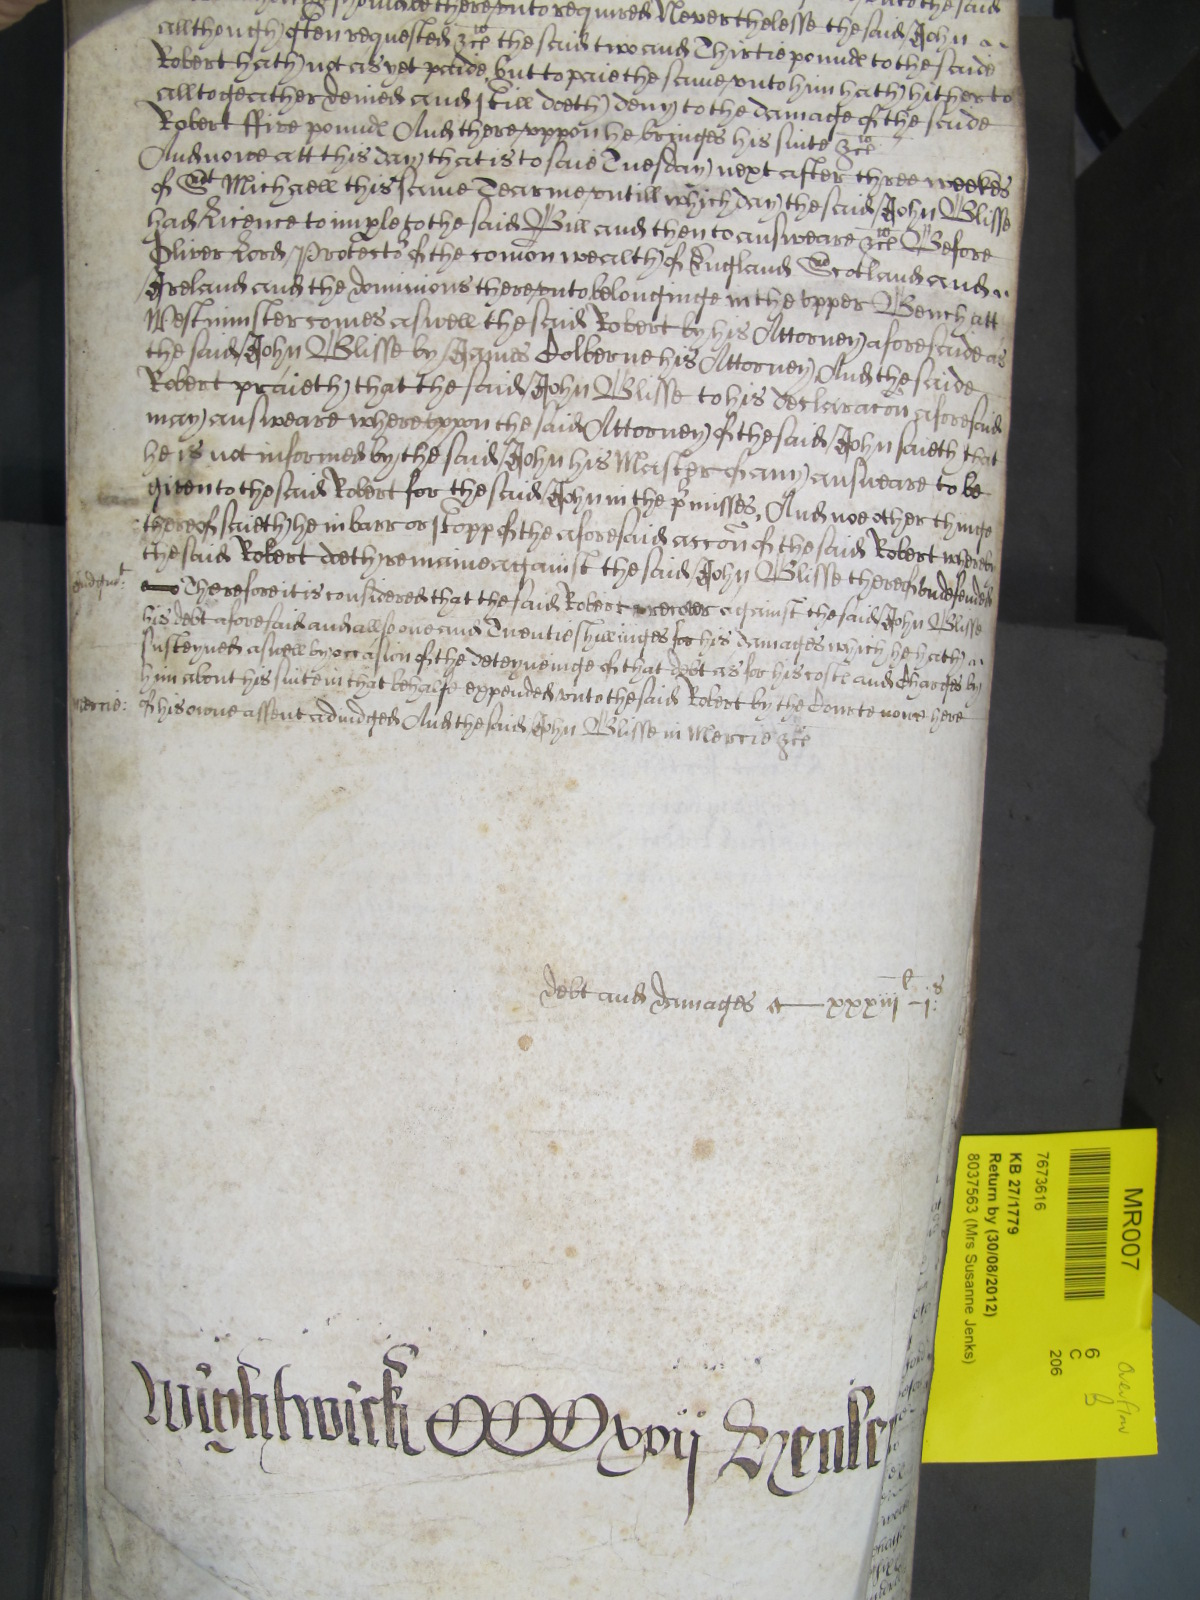 should be thereunto required Neverthelesse the said John
allthough often requested &c the said two and Thirtie pounds to the saide
Robert hath not as yet paide, but to paie the same unto him hath hitherto
alltogeather denied and still doeth deny to the damage of the saide
Robert ffive pounds And thereuppon he bringes his suite &c
And nowe att this day that is to saie Tuesday next after three weekes
of St Michaell this same Tearme untill which day the said John Blisse
had Licence to imple to the said Bill and then to answeare &c Before
Oliver Lord Protector of the comon wealth of England Scotland and
Ireland and the dominions thereunto belonginge in the upper Bench att
Westminster comes aswell the said Robert by his Attorney aforesaide as
the said John Blisse by James Colberne his Attorney And the saide
Robert praieth that the said John Blisse to his declaracon aforesaid
may answeare whereuppon the said Attorney of the said John saieth that
he is not informed by the said John his Maister of any answeare to be
given to the said Robert for the said John in the pmisses, And noe other thinge
thereof saieth he in barr or stopp of the aforesaid accon of the said Robert whereby
the said Robert doeth remaine against the said John Blisse thereof undefended
Judgmt: Therefore it is considered that the said Robert recover against the said John Blisse
his debt aforesaid and allsoe one and Twentie shillinges for his damages which he hath
susteyned aswell by occasion of the deteyneinge of that debt as for his costs and Charges by
him about his suite in that behalfe expended unto the said Robert by the Courte nowe here
mercie: of his owne assent adiudged And the said John Blisse in Mercie &c
debt and damages — xxxiij l j s
Wightwick CCCxvij Henley
MR007
7673616
KB 27/1779
Return by (30/08/2012)
8037563 (Mrs Susanne Jenks)
6
C
206
Overflow
B